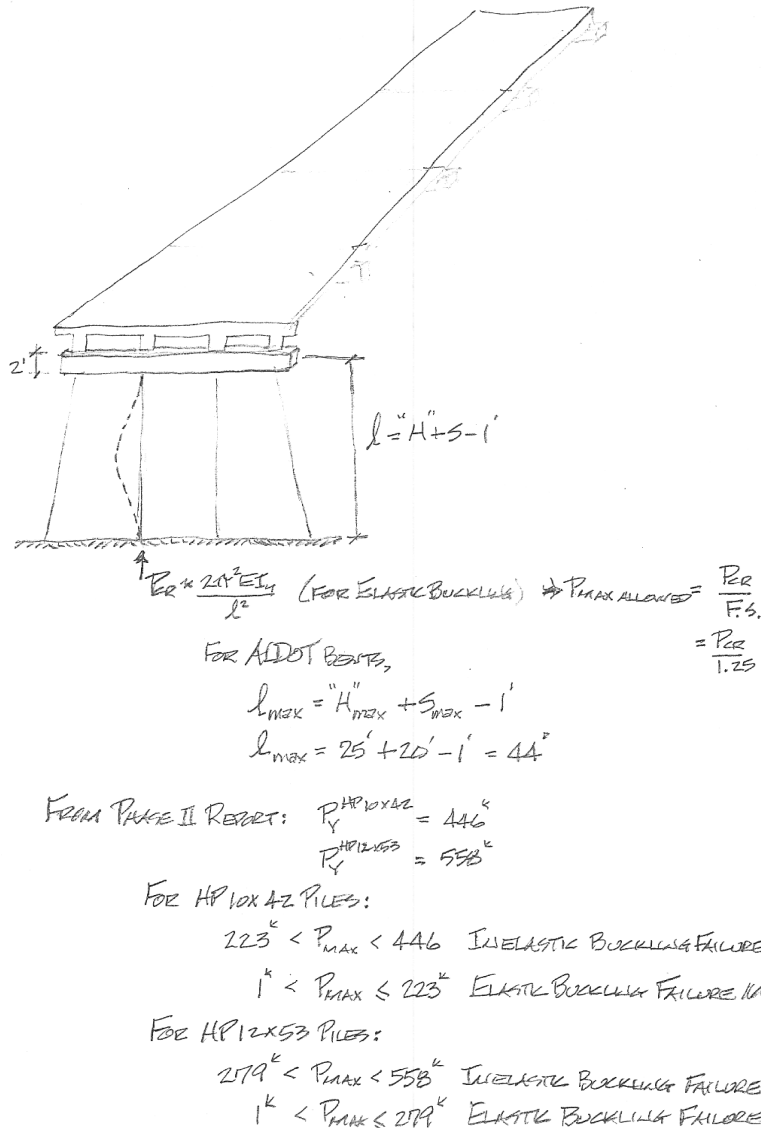 2'
l = "H" + S - 1'
P_CR ≈ 2π²EI_y / l² (FOR ELASTIC BUCKLING) ⇒ P_MAX ALLOWED = P_CR / F.S.
= P_CR / 1.25
FOR ALDOT BENTS,
l_max = "H"_max + S_max - 1'
l_max = 25' + 20' - 1' = 44'
FROM PHASE II REPORT: P_Y^HP10X42 = 446^k
P_Y^HP12X53 = 558^k
FOR HP10X42 PILES:
223^k < P_MAX < 446 INELASTIC BUCKLING FAILURE
1^k < P_MAX ≤ 223^k ELASTIC BUCKLING FAILURE
FOR HP12X53 PILES:
279^k < P_MAX < 558^k INELASTIC BUCKLING FAILURE
1^k < P_MAX ≤ 279^k ELASTIC BUCKLING FAILURE